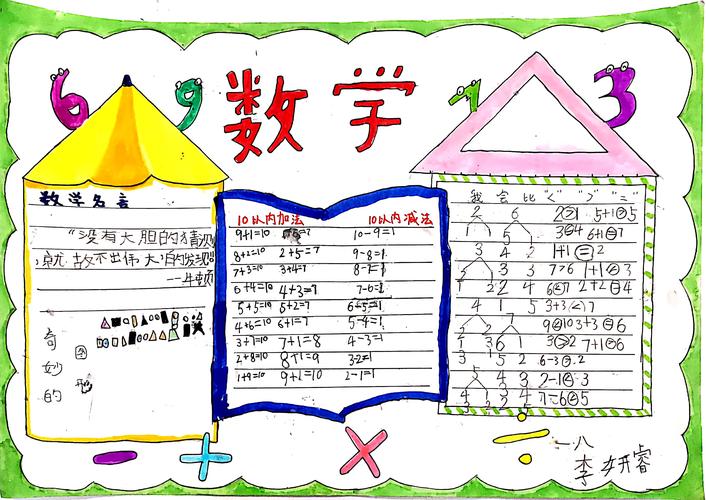 6 9 数学 7 3
数学名言
“没有大胆的猜测
就做不出伟大的发现”
——牛顿
奇妙的图形
10以内加法 10以内减法
9+1=10 10-9=1
8+2=10 2+5=7 9-8=1
7+3=10 3+4=7 8-7=1
6+4=10 4+3=7 7-6=1
5+5=10 5+2=7 6-5=1
4+6=10 6+1=7 5-4=1
3+1=10 7+1=8 4-3=1
2+8=10 8+1=9 3-2=1
1+9=10 9+1=10 2-1=1
我会比“<”“>”“=”
2 6 2>1 5+1>5
1 1 5 6+1=7
3 4 2 1+1=2
3 3 7>6 1+1<3
2 4 6<7 2+2=4
4 1 5 3+3<7
9<10 3+3=6
3 6 1 3>2 7+1>6
3 5 2 6-3>2
5 4 3 2-1<3
4 1 3 4
- + × ÷
一八
李妍睿